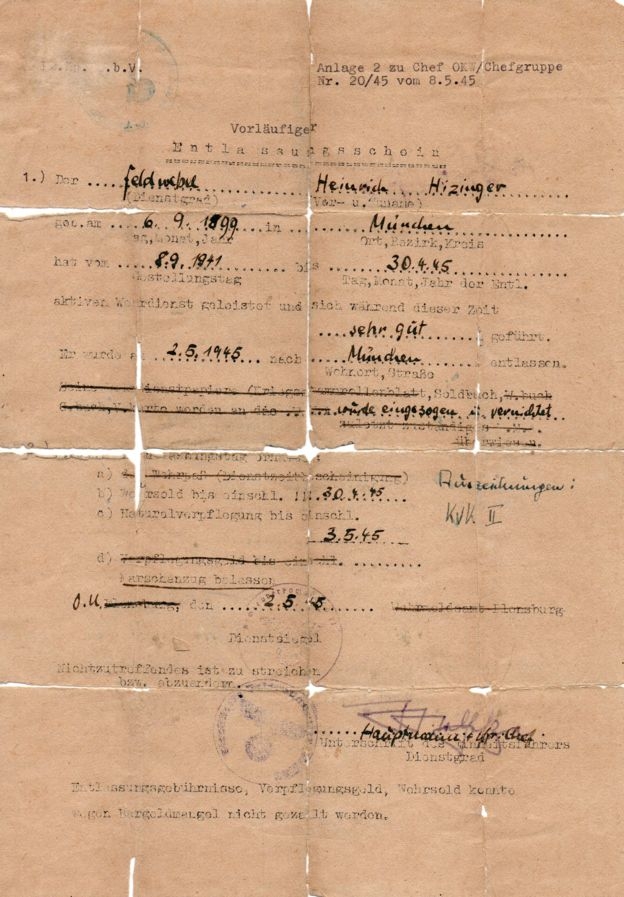 Anlage 2 zu Chef OKW/Chefgruppe
Nr. 20/45 vom 8.5.45
Vorläufiger
Entlassungsschein
1.) Der Feldwebel Heinrich Hizinger
(Dienstgrad) Vor- u. Zuname)
geb.am 6.9.1899 in München
Tag,Monat,Jahr Ort,Bezirk,Kreis
hat vom 8.9.1941 bis 30.4.45
Gestellungstag Tag,Monat,Jahr der Entl.
aktiven Wehrdienst geleistet und sich während dieser Zeit
sehr gut geführt.
Er wurde am 2.5.1945 nach München entlassen.
Wohnort,Straße
Soldbuch, W.buch
werden an die wurde eingezogen u. vernichtet
zuletzt zuständige
überwiesen.
a) Wehrpaß (Dienstzeitbescheinigung)
b) Wehrsold bis einschl. 30.4.45 Auszeichnungen:
c) Naturalverpflegung bis einschl. KVK II
3.5.45
d) Verpflegungsgeld bis einschl.
Marschenzug belassen
O.U. den 2.5.45 Wehrmeldeamt Flensburg
Dienstsiegel
Nichtzutreffendes ist zu streichen
bzw. abzuändern.
Hauptmann u.
Unterschrift des Einheitsführers
Dienstgrad
Entlassungsgebührnisse, Verpflegungsgeld, Wehrsold konnte
wegen Bargeldmangel nicht gezahlt werden.